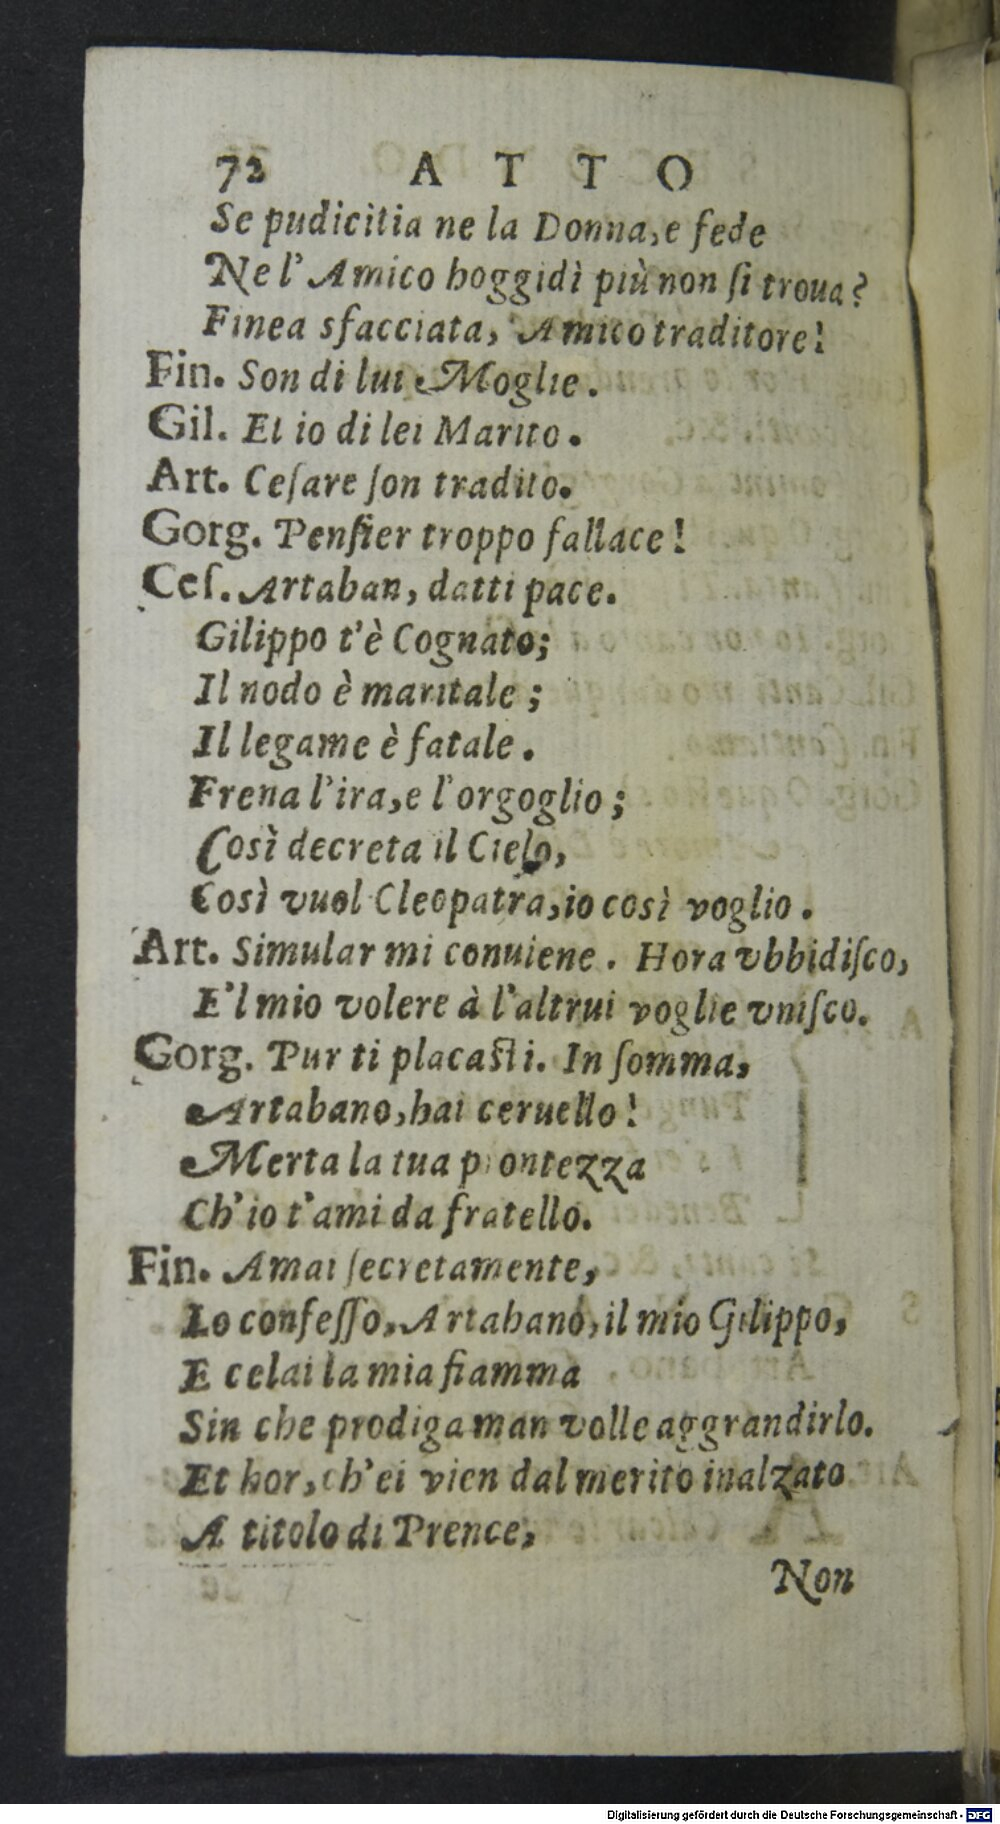 72 ATTO
Se pudicitia ne la Donna, e fede
Ne l'Amico hoggidì più non ſi troua?
Finea sfacciata, Amico traditore!
Fin. Son di lui Moglie.
Gil. Et io di lei Marito.
Art. Ceſare ſon tradito.
Gorg. Penſier troppo fallace!
Ceſ. Artaban, datti pace.
Gilippo t'è Cognato;
Il nodo è maritale;
Il legame è fatale.
Frena l'ira, e l'orgoglio;
Così decreta il Cielo,
Così vuol Cleopatra, io così voglio.
Art. Simular mi conuiene. Hora vbbidiſco,
E'l mio volere à l'altrui voglie vniſco.
Gorg. Pur ti placaſti. In ſomma,
Artabano, hai ceruello!
Merta la tua prontezza
Ch'io t'ami da fratello.
Fin. Amai ſecretamente,
Lo confeſſo, Artabano, il mio Gilippo,
E celai la mia fiamma
Sin che prodiga man volle aggrandirlo.
Et hor, ch'ei vien dal merito inalzato
A titolo di Prence,
Non
Digitalisierung gefördert durch die Deutsche Forschungsgemeinschaft - DFG